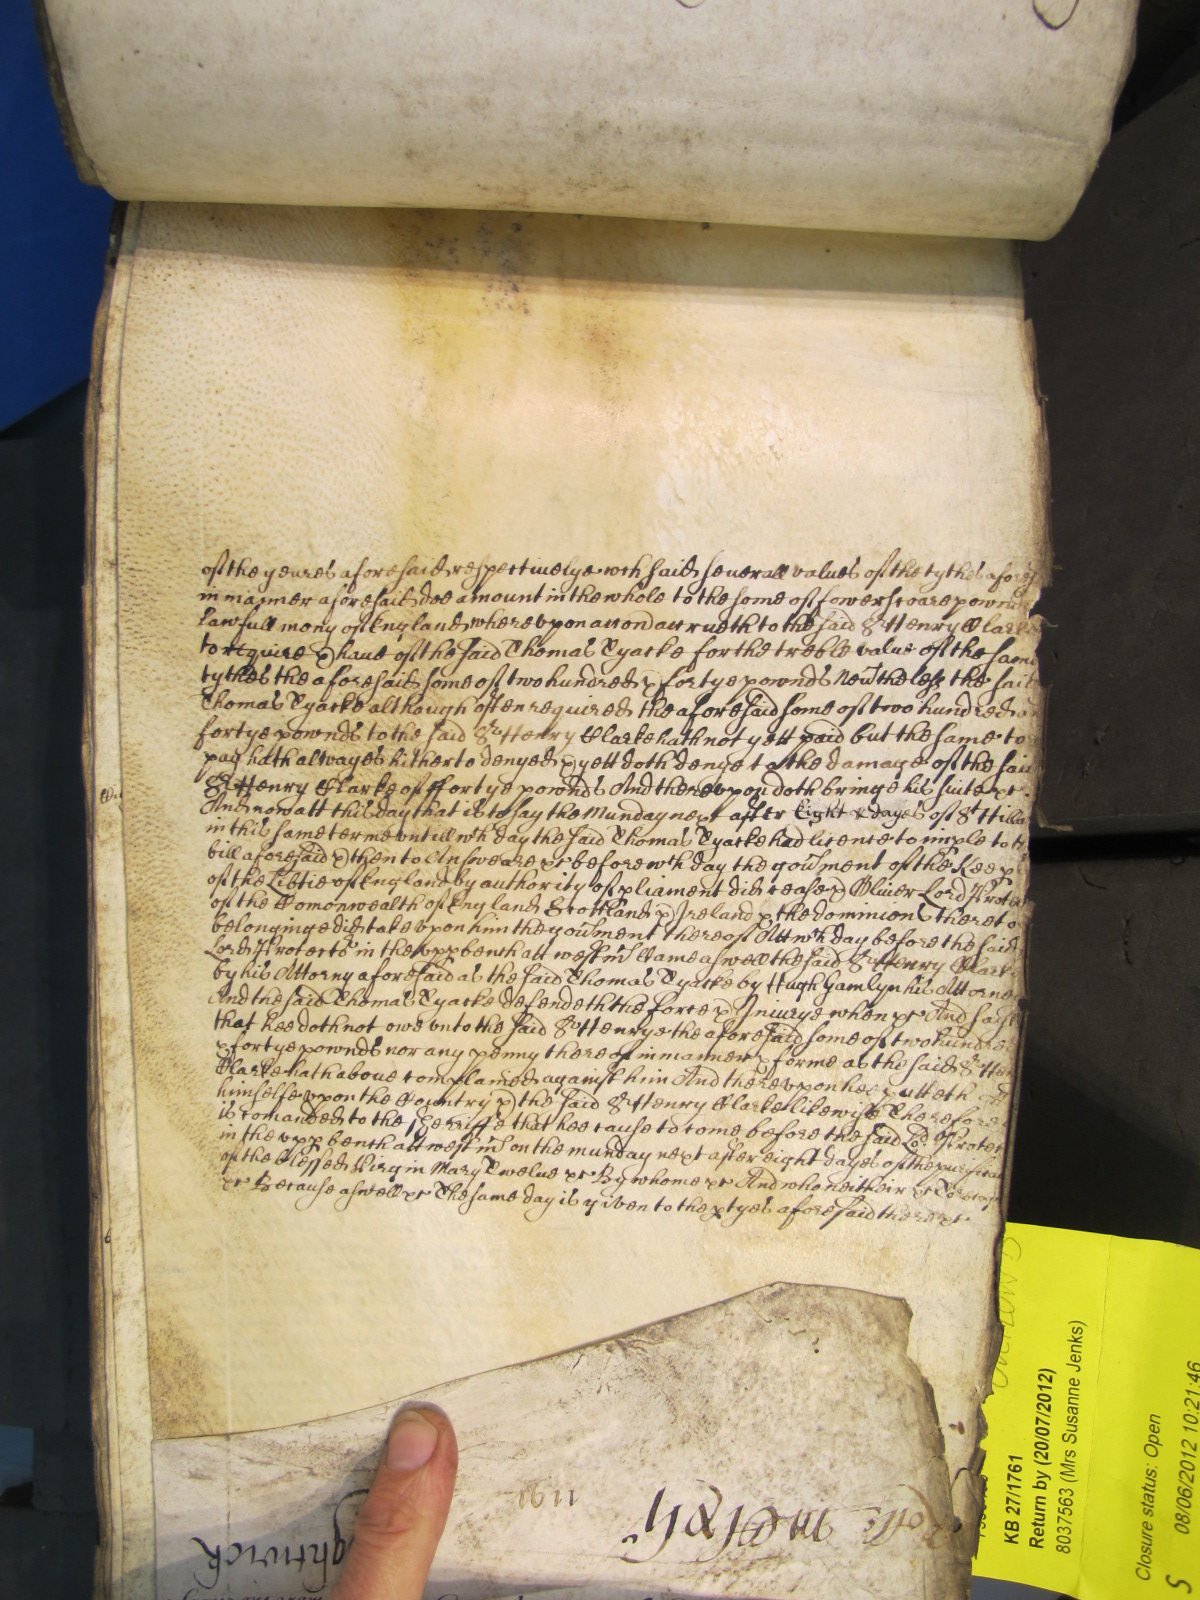 of the yeares aforesaid respectiuelye wch said seuerall values of the tythes afores
in manner aforesaid doe amount in the whole to the some of fowerscoare pownd
Lawfull mony of England whereupon accon accrueth to the said Sr Henry Clarke
to require & haue of the said Thomas Tyacke for the treble value of the same
tythes the aforesaid some of two hundred & fortye pownds Neutheles the said
Thomas Tyacke although often required the aforesaid some of two hundred and
fortye pownds to the said Sr Henry Clarke hath not yett paid but the same to
pay hath alwayes hitherto denyed & yett doth denye to the damage of the said
Sr Henry Clarke of ffortye pownds And thereupon doth bringe his suite &c
And now att this day that is to say the Munday next after Eight dayes of St Hilla
in this same terme untill wch day the said Thomas Tyacke had licence to imple to the
bill aforesaid & then to Answeare &c before wch day the goument of the Keep
of the Libtie of England by authority of pliament did cease & Oliuer Lord Protec
of the Comonwealth of England Scottland & Ireland & the dominions thereto
belonginge did take upon him the goument thereof Att wch day before the said
Lord Protector in the upp bench att westm Came aswell the said Sr Henry Clark
by his Attorny aforesaid as the said Thomas Tyacke by Hugh Gamlyn his Attorne
And the said Thomas Tyacke defendeth the force & Iniurye when &c And saith
that hee doth not owe unto the said Sr Henrye the aforesaid some of two hundred
& fortye pownds nor any penny thereof in manner & forme as the said Sr Hen
Clarke hath aboue complained against him And thereupon hee putteth
himselfe upon the Country & the said Sr Henry Clarke likewise Therefore
is comanded to the Sherriffe that hee cause to come before the said Lo: Protec
in the upp bench att westm on the munday next after eight dayes of the purificac
of the blessed Virgin Mary Twelue &c By whome &c And who neither &c To recog
&c Because aswell &c The same day is giuen to the ptyes aforesaid there &c
1191
KB 27/1761
Return by (20/07/2012)
8037563 (Mrs Susanne Jenks)
Closure status: Open
08/06/2012 10:21:46
S